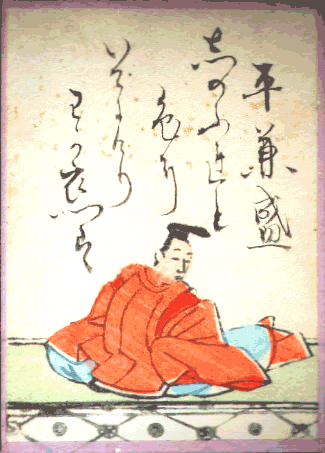 平兼盛
しのふれと
色に
いてにけり
わか恋は